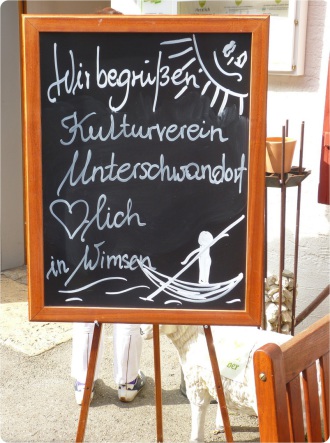 Wir begrüßen
Kulturverein
Unterschwandorf
♡lich
in Wimsen